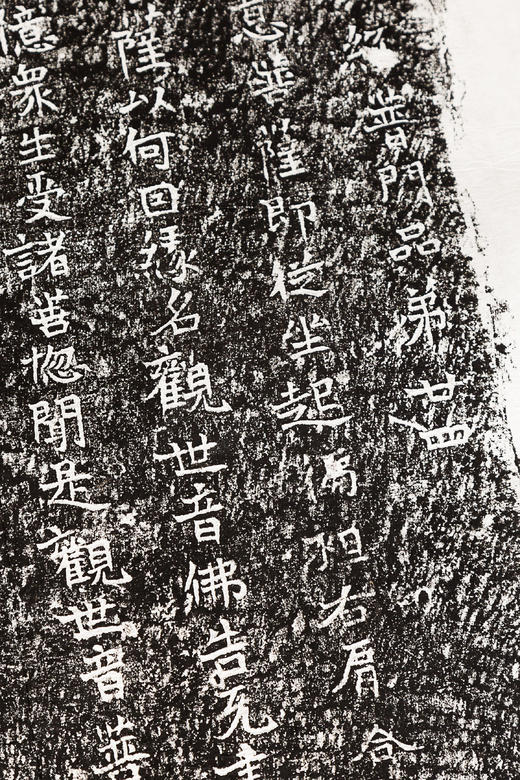 經普門品第廿四
意菩薩即從坐起偏袒右肩合
薩以何因緣名觀世音佛告无
億眾生受諸苦惱聞是觀世音菩